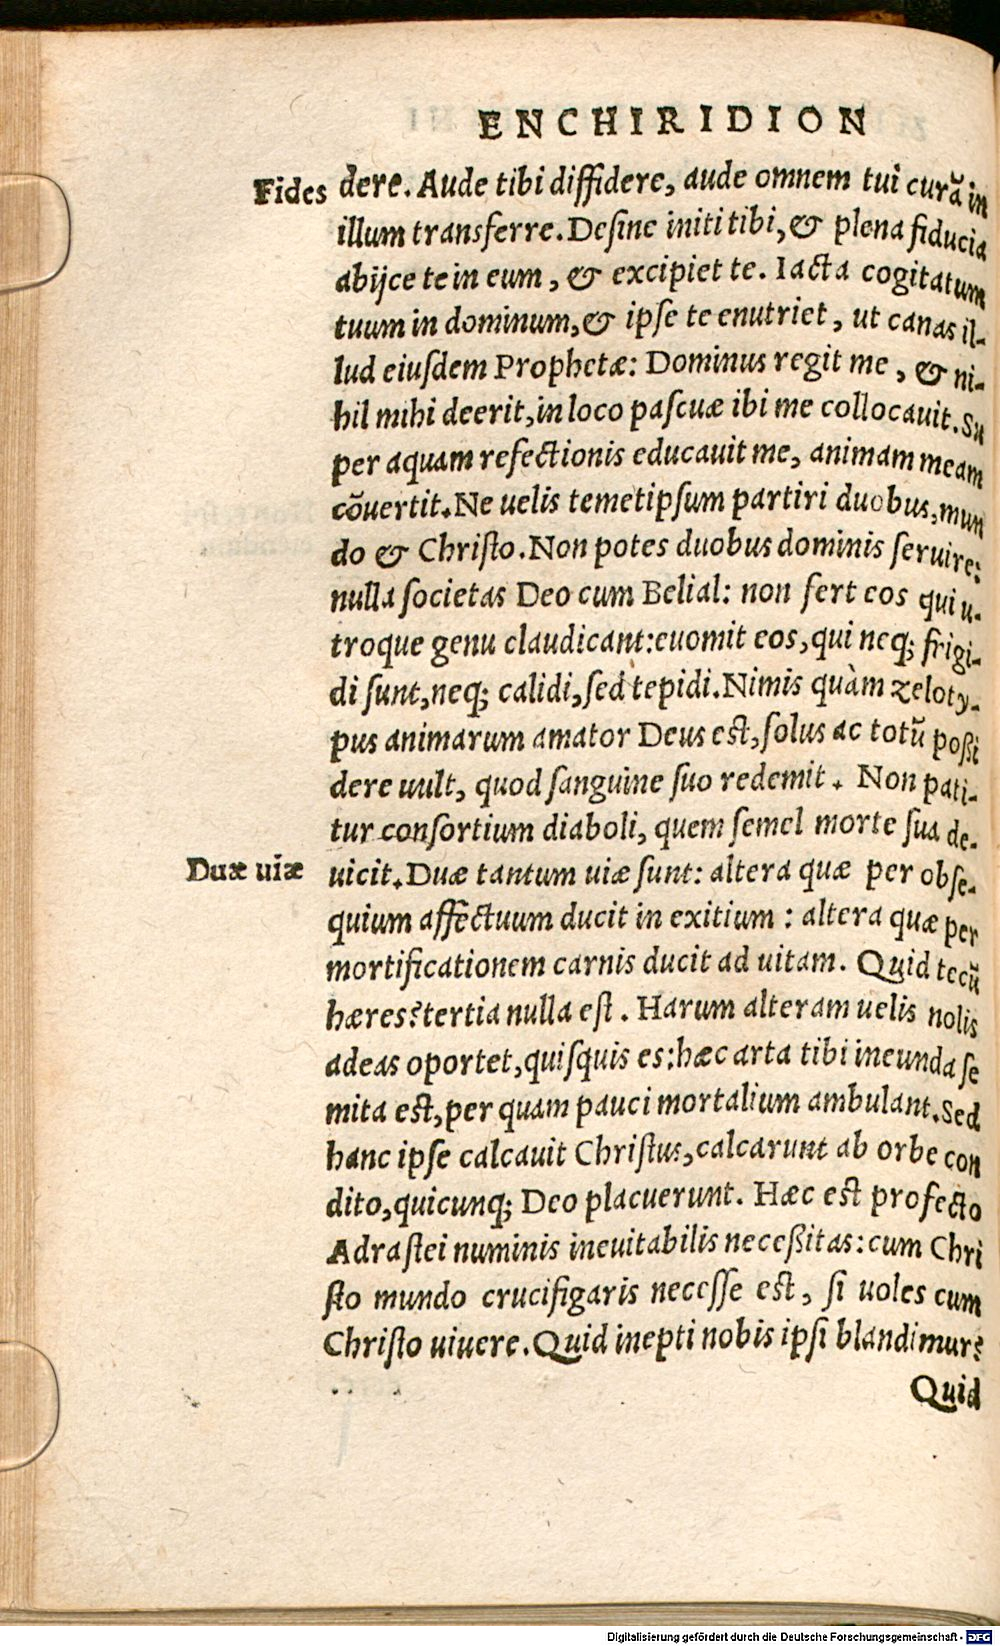 ENCHIRIDION
Fides
dere. Aude tibi diffidere, aude omnem tui curã in
illum transferre. Desine initi tibi, & plena fiducia
abijce te in eum, & excipiet te. Iacta cogitatum
tuum in dominum, & ipse te enutriet, ut canas il-
lud eiusdem Prophetæ: Dominus regit me, & ni-
hil mihi deerit, in loco pascuæ ibi me collocauit. Su
per aquam refectionis educauit me, animam meam
cõuertit. Ne uelis temetipsum partiri duobus, mun
do & Christo. Non potes duobus dominis seruire:
nulla societas Deo cum Belial: non fert eos qui u-
troque genu claudicant: euomit eos, qui neq; frigi-
di sunt, neq; calidi, sed tepidi. Nimis quàm zeloty-
pus animarum amator Deus est, solus ac totũ poßi
dere uult, quod sanguine suo redemit. Non pati-
tur consortium diaboli, quem semel morte sua de-
Duæ uiæ
uicit. Duæ tantum uiæ sunt: altera quæ per obse-
quium affẽctuum ducit in exitium: altera quæ per
mortificationem carnis ducit ad uitam. Quid tecũ
hæres? tertia nulla est. Harum alteram uelis nolis
adeas oportet, quisquis es: hæc arta tibi ineunda se
mita est, per quam pauci mortalium ambulant. Sed
hanc ipse calcauit Christus, calcarunt ab orbe con
dito, quicunq; Deo placuerunt. Hæc est profecto
Adrastei numinis ineuitabilis neceßitas: cum Chri
sto mundo crucifigaris necesse est, si uoles cum
Christo uiuere. Quid inepti nobis ipsi blandimur?
Quid
Digitalisierung gefördert durch die Deutsche Forschungsgemeinschaft - DFG